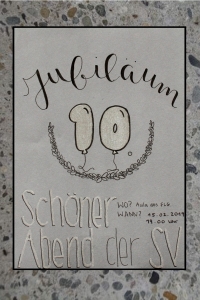 Jubiläum
10.
Schöner
WO? Aula des FCB
WANN? 05.02.2019
19.00 Uhr
Abend der SV